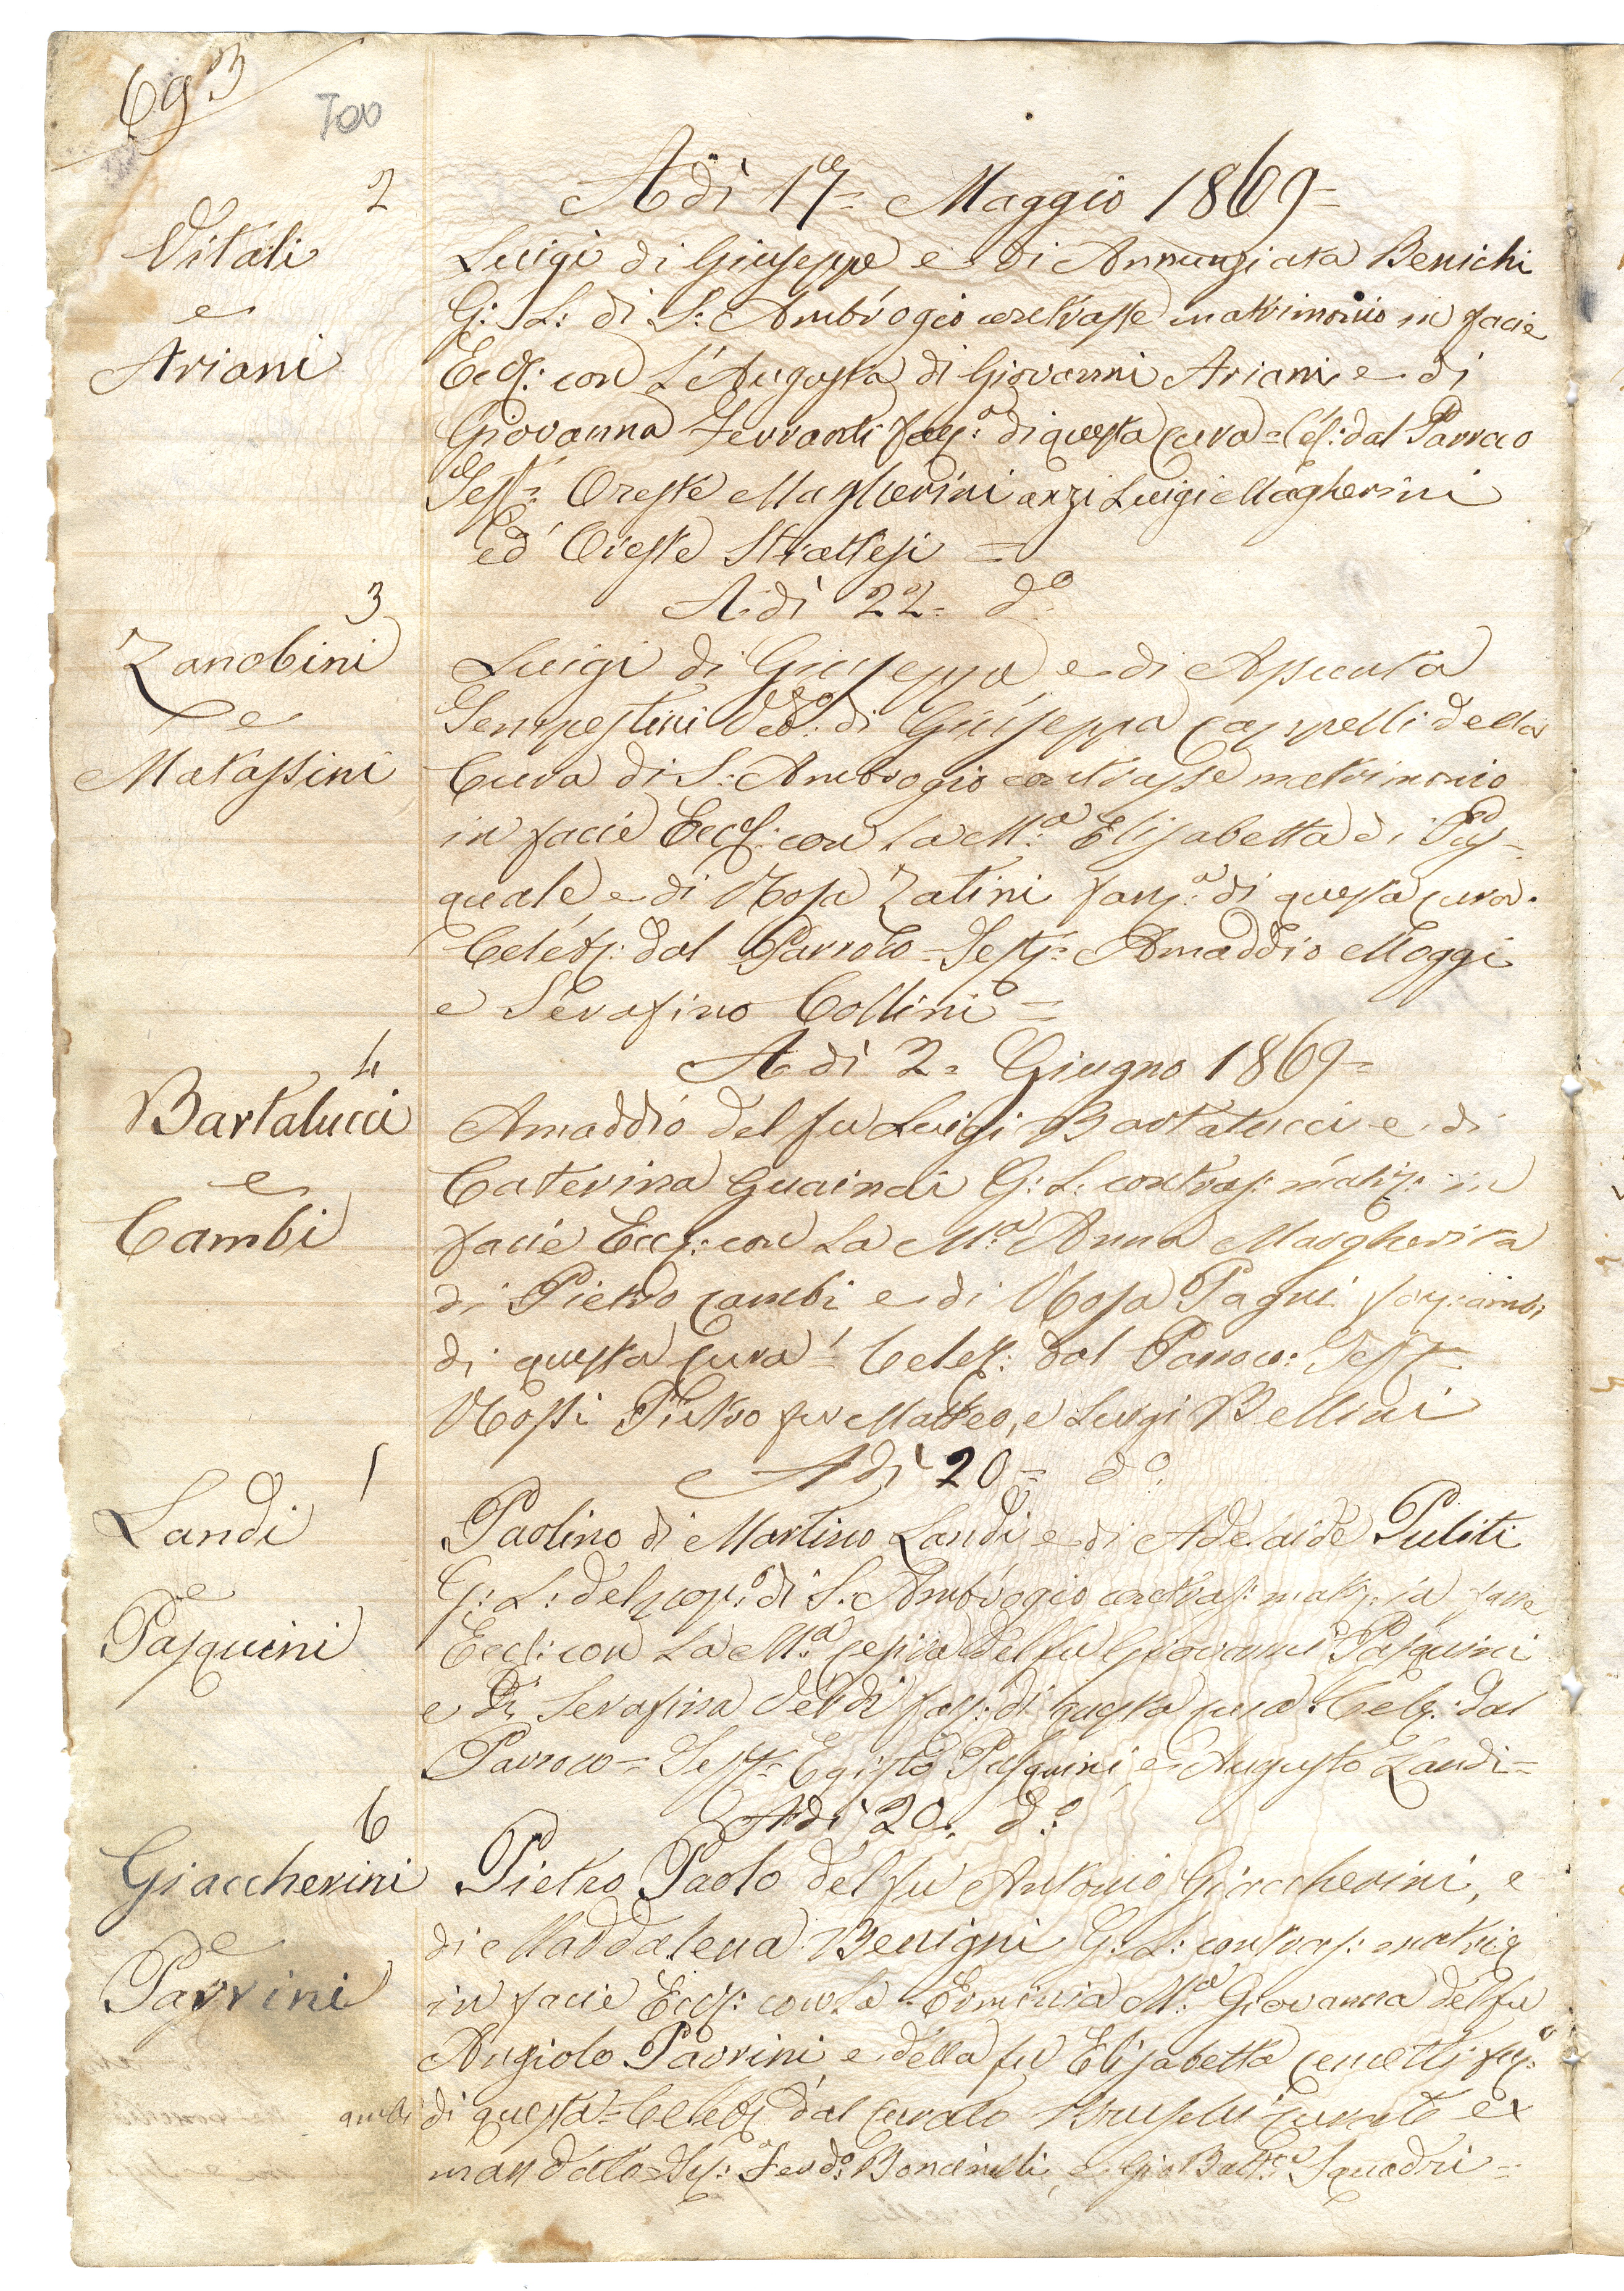 693
Tov
2
Vitali
e
Ariani
Adì 17= Maggio 1869=
Luigi di Giuseppe e di Annunziata Benichi
G: L: di S: Ambrogio contrasse matrimonio in facie
Eccl: con L'Augusta di Giovanni Ariani e di
Giovanna Ferranti fanc:a di questa cura = Cel: dal Parroco
Test= Oreste Magherini anzi Luigi Magherini
ed Oreste Strattesi =
3
Zanobini
e
Matassini
Adì 22= do
Luigi di Giuseppe e di Assunta
Sempestini Vedo: di Giuseppa Cappelli della
Cura di S: Ambrogio contrasse matrimonio
in facie Eccl: con La Ma Elisabetta di Pas=
quale e di Rosa Zatini fanc:a di questa cura.
Celeb: dal Parroco = Test= Amaddio Moggi
e Serafino Collini =
4
Bartalucci
e
Cambi
Adì 2= Giugno 1869=
Amaddio del fu Luigi Bartalucci e di
Caterina G: L: contras: matr: in
facie Eccl: con La Ma Anna Margherita
di Pietro Cambi e di Rosa Pagni fanc: ambi
di questa Cura = Celeb: dal Parroco: Test=
Rossi Pietro fu Matteo, e Luigi Bellini
Adì 20= do
Landi
e
Pasquini
Paolino di Martino Landi e di Adelaide Puliti
G: L: del pop:o di S: Ambrogio contras: matr: in facie
Eccl: con La Ma Cesira del fu Giovanni Pasquini
e Di Serafina fanc: di questa cura. Celeb: dal
Parroco = Test= Egisto Pasquini e Augusto Landi=
6
Giaccherini
e
Parrini
Adì 20. do
Pietro Paolo del fu Antonio Giaccherini, e
di Maddalena Benigni G: L: contras: matri
in facie Eccl: con La Erminia Ma Giovanna del fu
Angiolo Parrini e della fu Elisabetta fanc:
ambi di questa = Celeb: dal Curato curato ex
mandato = Test: Ferdo: Boncinelli, e Gio Batta Squadri=